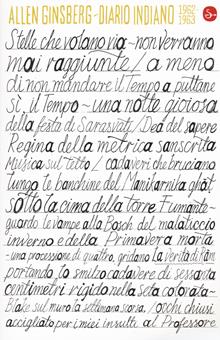 ALLEN GINSBERG - DIARIO INDIANO 1962 1963
Stelle che volano via - non verranno
mai raggiunte / a meno
di non mandare il Tempo a puttane
Sì, il Tempo - una notte gioiosa
della festa di Sarasvati / Dea del sapere
Regina della metrica sanscrita
Musica sul tetto / cadaveri che bruciano
lungo le banchine del Manikarnika ghat
sotto la cima della torre Fumante -
guardo le vampe alla Bosch del malaticcio
inverno e della Primavera morta
- una processione di quattro, gridano La verità di Ram
portando lo smilzo cadavere di sessanta
centimetri rigido nella seta colorata -
Blake sul muro la settimana scorsa / occhi chiusi
accigliato per i miei insulti al Professore